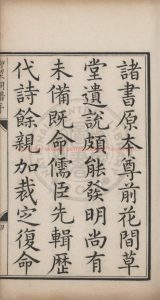 諸書原本尊前花間草
堂遺說頗能發明尚有
未備既命儒臣先輯歷
代詩餘親加裁定復命